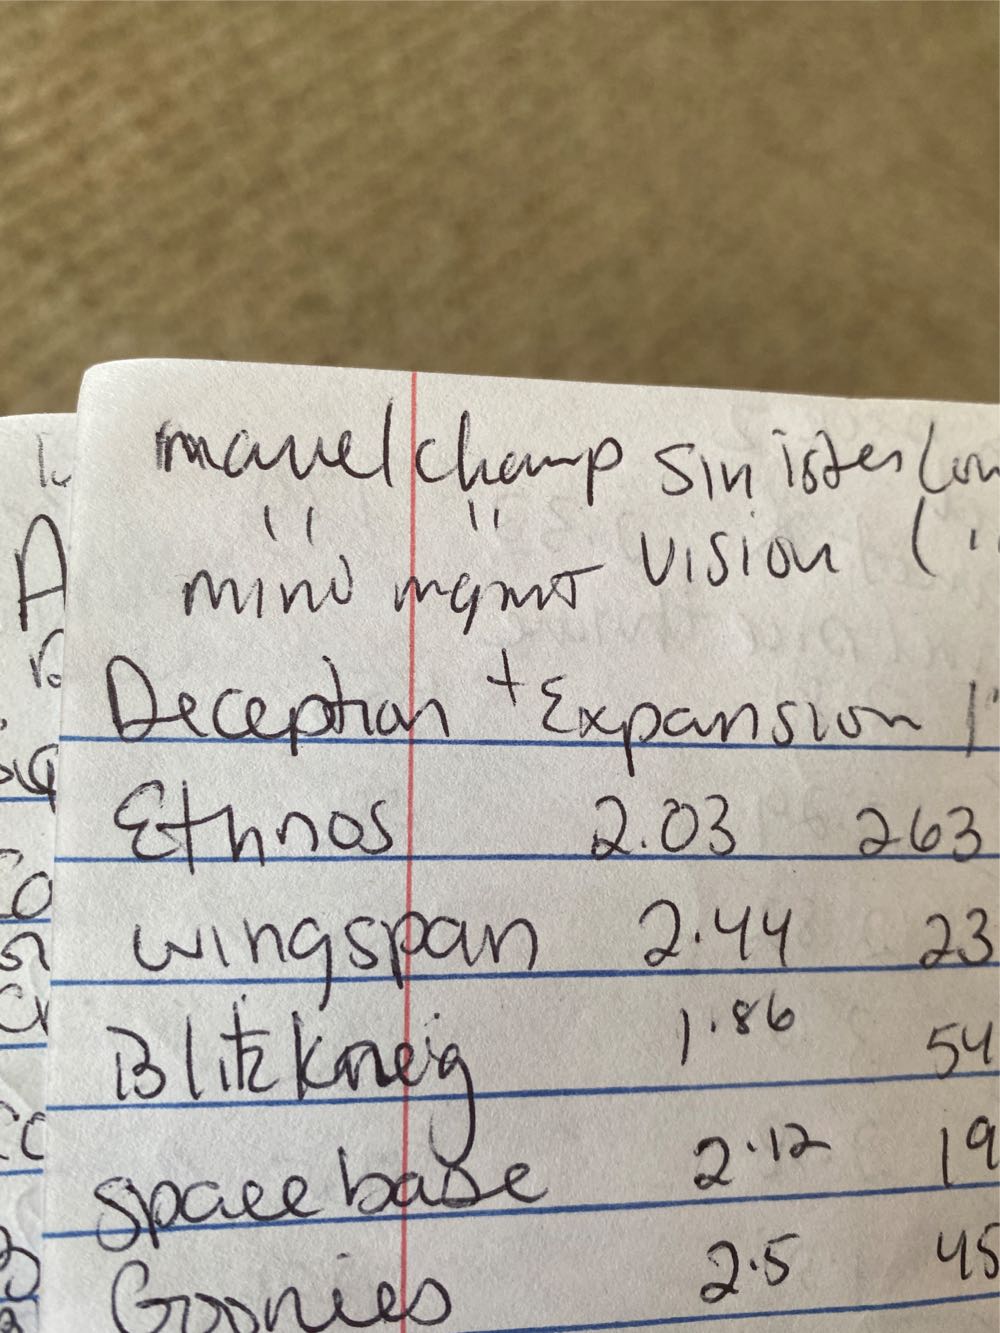 marvel champ sinister (on
" " vision ( "
mind mgmt
Deception + Expansion
Ethnos 2.03 263
wingspan 2.44 23
Blitzkrieg 1.86 54
space base 2.12 19
Goonies 2.5 45